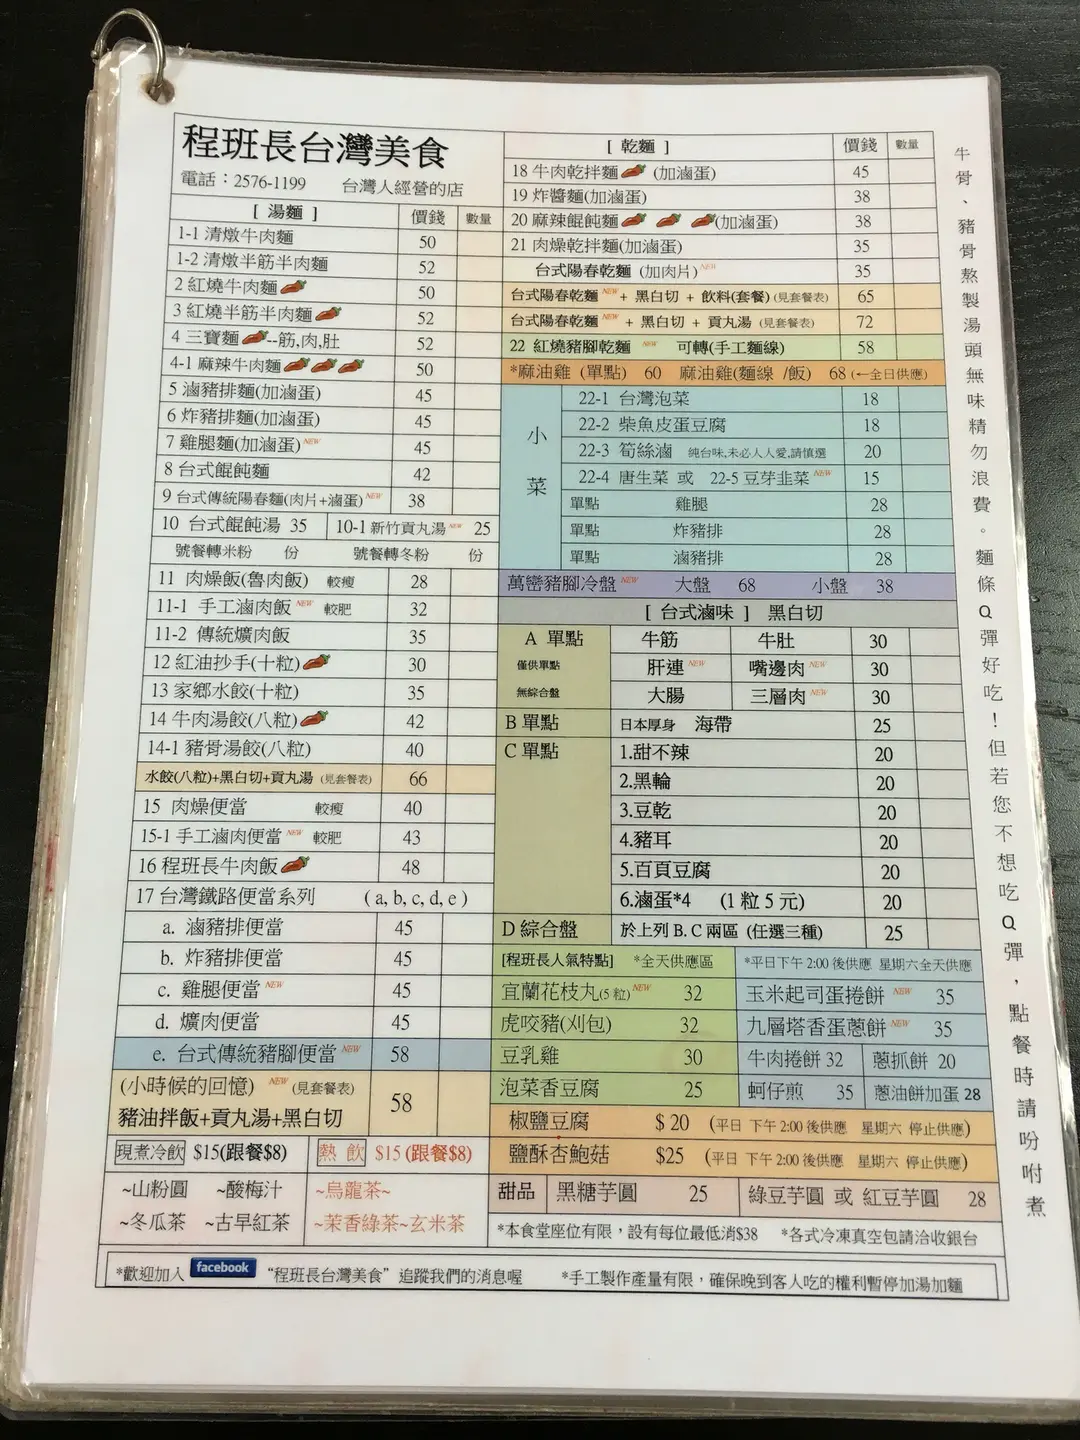 程班長台灣美食
電話：2576-1199 台灣人經營的店
[ 湯麵 ] 價錢 數量
1-1 清燉牛肉麵 50
1-2 清燉半筋半肉麵 52
2 紅燒牛肉麵 50
3 紅燒半筋半肉麵 52
4 三寶麵--筋,肉,肚 52
4-1 麻辣牛肉麵 50
5 滷豬排麵(加滷蛋) 45
6 炸豬排麵(加滷蛋) 45
7 雞腿麵(加滷蛋)NEW 45
8 台式餛飩麵 42
9 台式傳統陽春麵(肉片+滷蛋)NEW 38
10 台式餛飩湯 35 10-1 新竹貢丸湯NEW 25
號餐轉米粉 份 號餐轉冬粉 份
11 肉燥飯(魯肉飯) 較瘦 28
11-1 手工滷肉飯NEW 較肥 32
11-2 傳統爌肉飯 35
12 紅油抄手(十粒) 30
13 家鄉水餃(十粒) 35
14 牛肉湯餃(八粒) 42
14-1 豬骨湯餃(八粒) 40
水餃(八粒)+黑白切+貢丸湯 (見套餐表) 66
15 肉燥便當 較瘦 40
15-1 手工滷肉便當NEW 較肥 43
16 程班長牛肉飯 48
17 台灣鐵路便當系列 ( a, b, c, d, e )
a. 滷豬排便當 45
b. 炸豬排便當 45
c. 雞腿便當NEW 45
d. 爌肉便當 45
e. 台式傳統豬腳便當NEW 58
(小時候的回憶) NEW (見套餐表)
豬油拌飯+貢丸湯+黑白切 58
現煮冷飲 $15(跟餐$8) 熱 飲 $15 (跟餐$8)
~山粉圓 ~酸梅汁 ~烏龍茶~
~冬瓜茶 ~古早紅茶 ~茉香綠茶~玄米茶
[ 乾麵 ] 價錢 數量
18 牛肉乾拌麵 (加滷蛋) 45
19 炸醬麵(加滷蛋) 38
20 麻辣餛飩麵 (加滷蛋) 38
21 肉燥乾拌麵(加滷蛋) 35
台式陽春乾麵 (加肉片)NEW 35
台式陽春乾麵 NEW + 黑白切 + 飲料(套餐) (見套餐表) 65
台式陽春乾麵 NEW + 黑白切 + 貢丸湯 (見套餐表) 72
22 紅燒豬腳乾麵 NEW 可轉(手工麵線) 58
*麻油雞 (單點) 60 麻油雞(麵線 /飯) 68 (←全日供應)
小菜
22-1 台灣泡菜 18
22-2 柴魚皮蛋豆腐 18
22-3 筍絲滷 純台味,未必人人愛,請慎選 20
22-4 唐生菜 或 22-5 豆芽韭菜NEW 15
單點 雞腿 28
單點 炸豬排 28
單點 滷豬排 28
萬巒豬腳冷盤NEW 大盤 68 小盤 38
[ 台式滷味 ] 黑白切
A 單點 牛筋 牛肚 30
僅供單點 肝連NEW 嘴邊肉NEW 30
無綜合盤 大腸 三層肉NEW 30
B 單點 日本厚身 海帶 25
C 單點 1.甜不辣 20
2.黑輪 20
3.豆乾 20
4.豬耳 20
5.百頁豆腐 20
6.滷蛋*4 (1 粒 5 元) 20
D 綜合盤 於上列 B. C 兩區 (任選三種) 25
[程班長人氣特點] *全天供應區 *平日下午 2:00 後供應 星期六全天供應
宜蘭花枝丸(5 粒)NEW 32 玉米起司蛋捲餅 NEW 35
虎咬豬(刈包) 32 九層塔香蛋蔥餅 NEW 35
豆乳雞 30 牛肉捲餅 32 蔥抓餅 20
泡菜香豆腐 25 蚵仔煎 35 蔥油餅加蛋 28
椒鹽豆腐 $ 20 (平日 下午 2:00 後供應 星期六 停止供應)
鹽酥杏鮑菇 $25 (平日 下午 2:00 後供應 星期六 停止供應)
甜品 黑糖芋圓 25 綠豆芋圓 或 紅豆芋圓 28
*本食堂座位有限，設有每位最低消$38 *各式冷凍真空包請洽收銀台
*歡迎加入 facebook “程班長台灣美食” 追蹤我們的消息喔 *手工製作產量有限，確保晚到客人吃的權利暫停加湯加麵
牛骨、豬骨熬製湯頭無味精勿浪費。麵條Q彈好吃！但若您不想吃Q彈，點餐時請吩咐煮